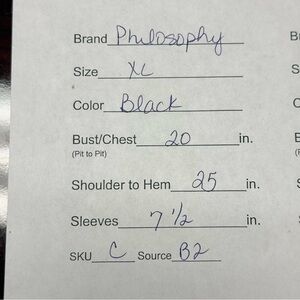 Brand Philosophy
Size XL
Color Black
Bust/Chest 20 in.
(Pit to Pit)
Shoulder to Hem 25 in.
Sleeves 7 1/2 in.
SKU C Source B2